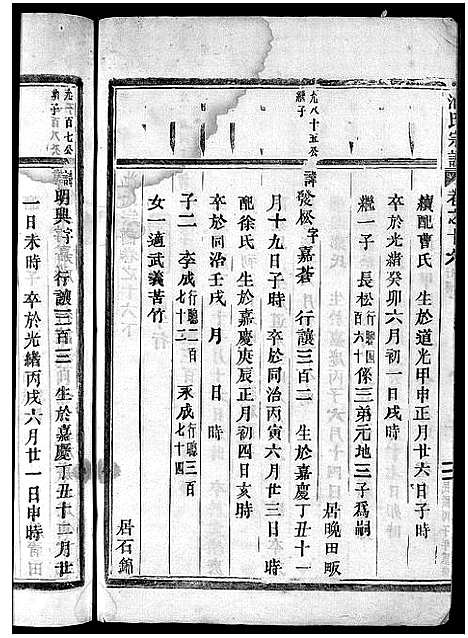 氏宗譜 卷之十六
續配曹氏 生於道光甲申正月廿六日子時
卒於光緒癸卯六月初一日戌時
繼一子 長松行聽四百六十係三弟元地三子爲嗣
居晚田畈
九八十五公繼子
諱發松字嘉蒼 行讓三百二 生於嘉慶丁丑十一
月十九日子時 卒於同治丙寅六月廿三日 時
配徐氏 生於嘉慶庚辰正月初四日亥時
卒於同治壬戌 月 日 時
子二 李成行聽二百七十三 永成行聽三百七十四
女一適武義苦竹
居石錦
百七公
百八公
諱明興字 行讓三百三 生於嘉慶丁丑十二月廿
一日未時 卒於光緒丙戌六月廿一日申時